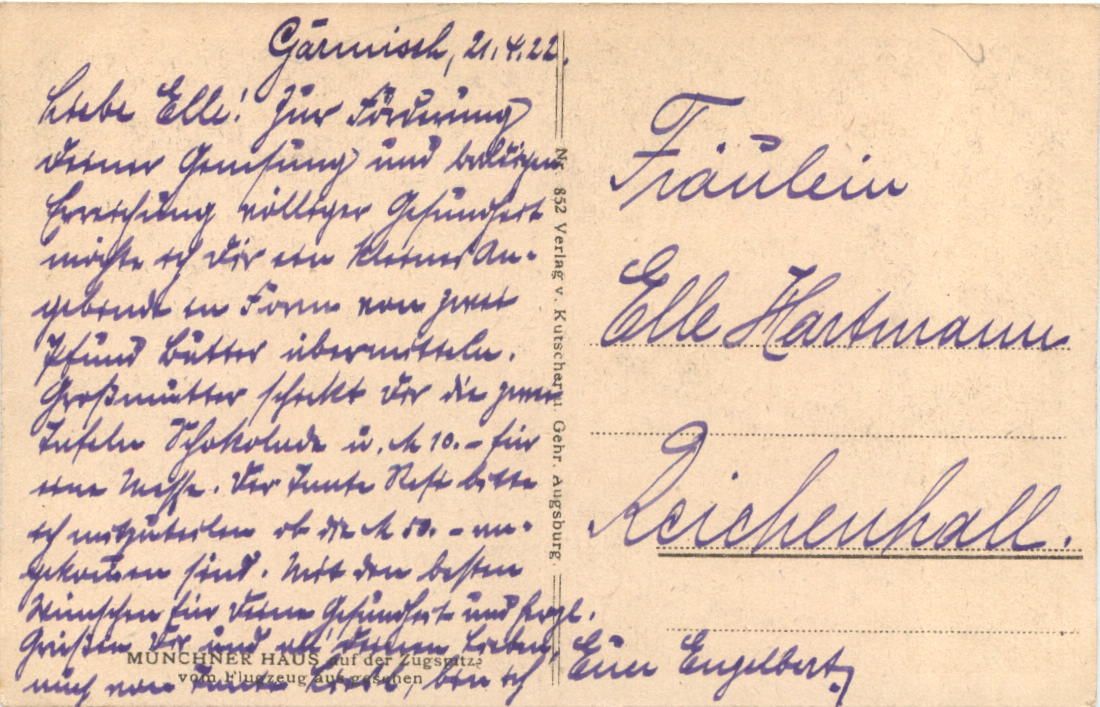 Garmisch, 21.4.22.
Liebe Elle! Zur Förderung
Deiner Genesung und baldigen
Erreichung völliger Gesundheit
möchte ich Dir ein kleines An-
gebinde in Form von zwei
Pfund Butter übermitteln.
Großmutter schickt Dir die zwei
Tafeln Schokolade u. M 10.- für
eine Messe. Der Tante Resi bitte
ich mitzuteilen ob die M 50.- an-
gekommen sind. Mit den besten
Wünschen für Deine Gesundheit und herzl.
Grüßen Dir und all' Deinen Lieben,
auch von Tante, bin ich
Euer Engelbert.
MÜNCHNER HAUS auf der Zugspitze
vom Flugzeug aus gesehen
Nr. 852 Verlag v. Kutscher u. Gehr. Augsburg.
Fräulein
Elle Hartmann
Reichenhall.